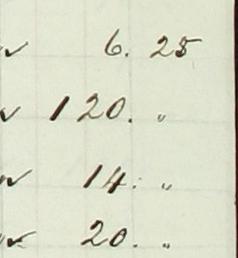 6. 25
120. "
14. "
20. "